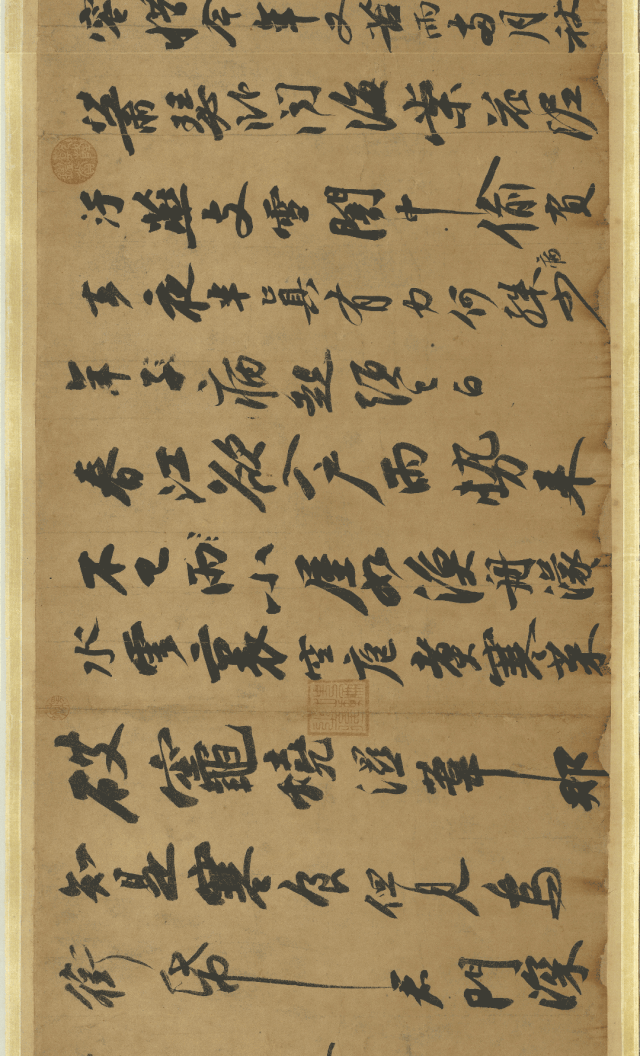 容惜今年又苦雨兩月秋
蕭瑟臥聞海棠花泥
汙燕支雪闇中偷負
去夜半真有力何殊病少
年子病起須已白
春江欲入戶雨勢來
不已雨小屋如漁舟濛濛
水雲裏空庖煮寒菜
破竈燒濕葦那
知是寒食但見烏
銜帋君門深